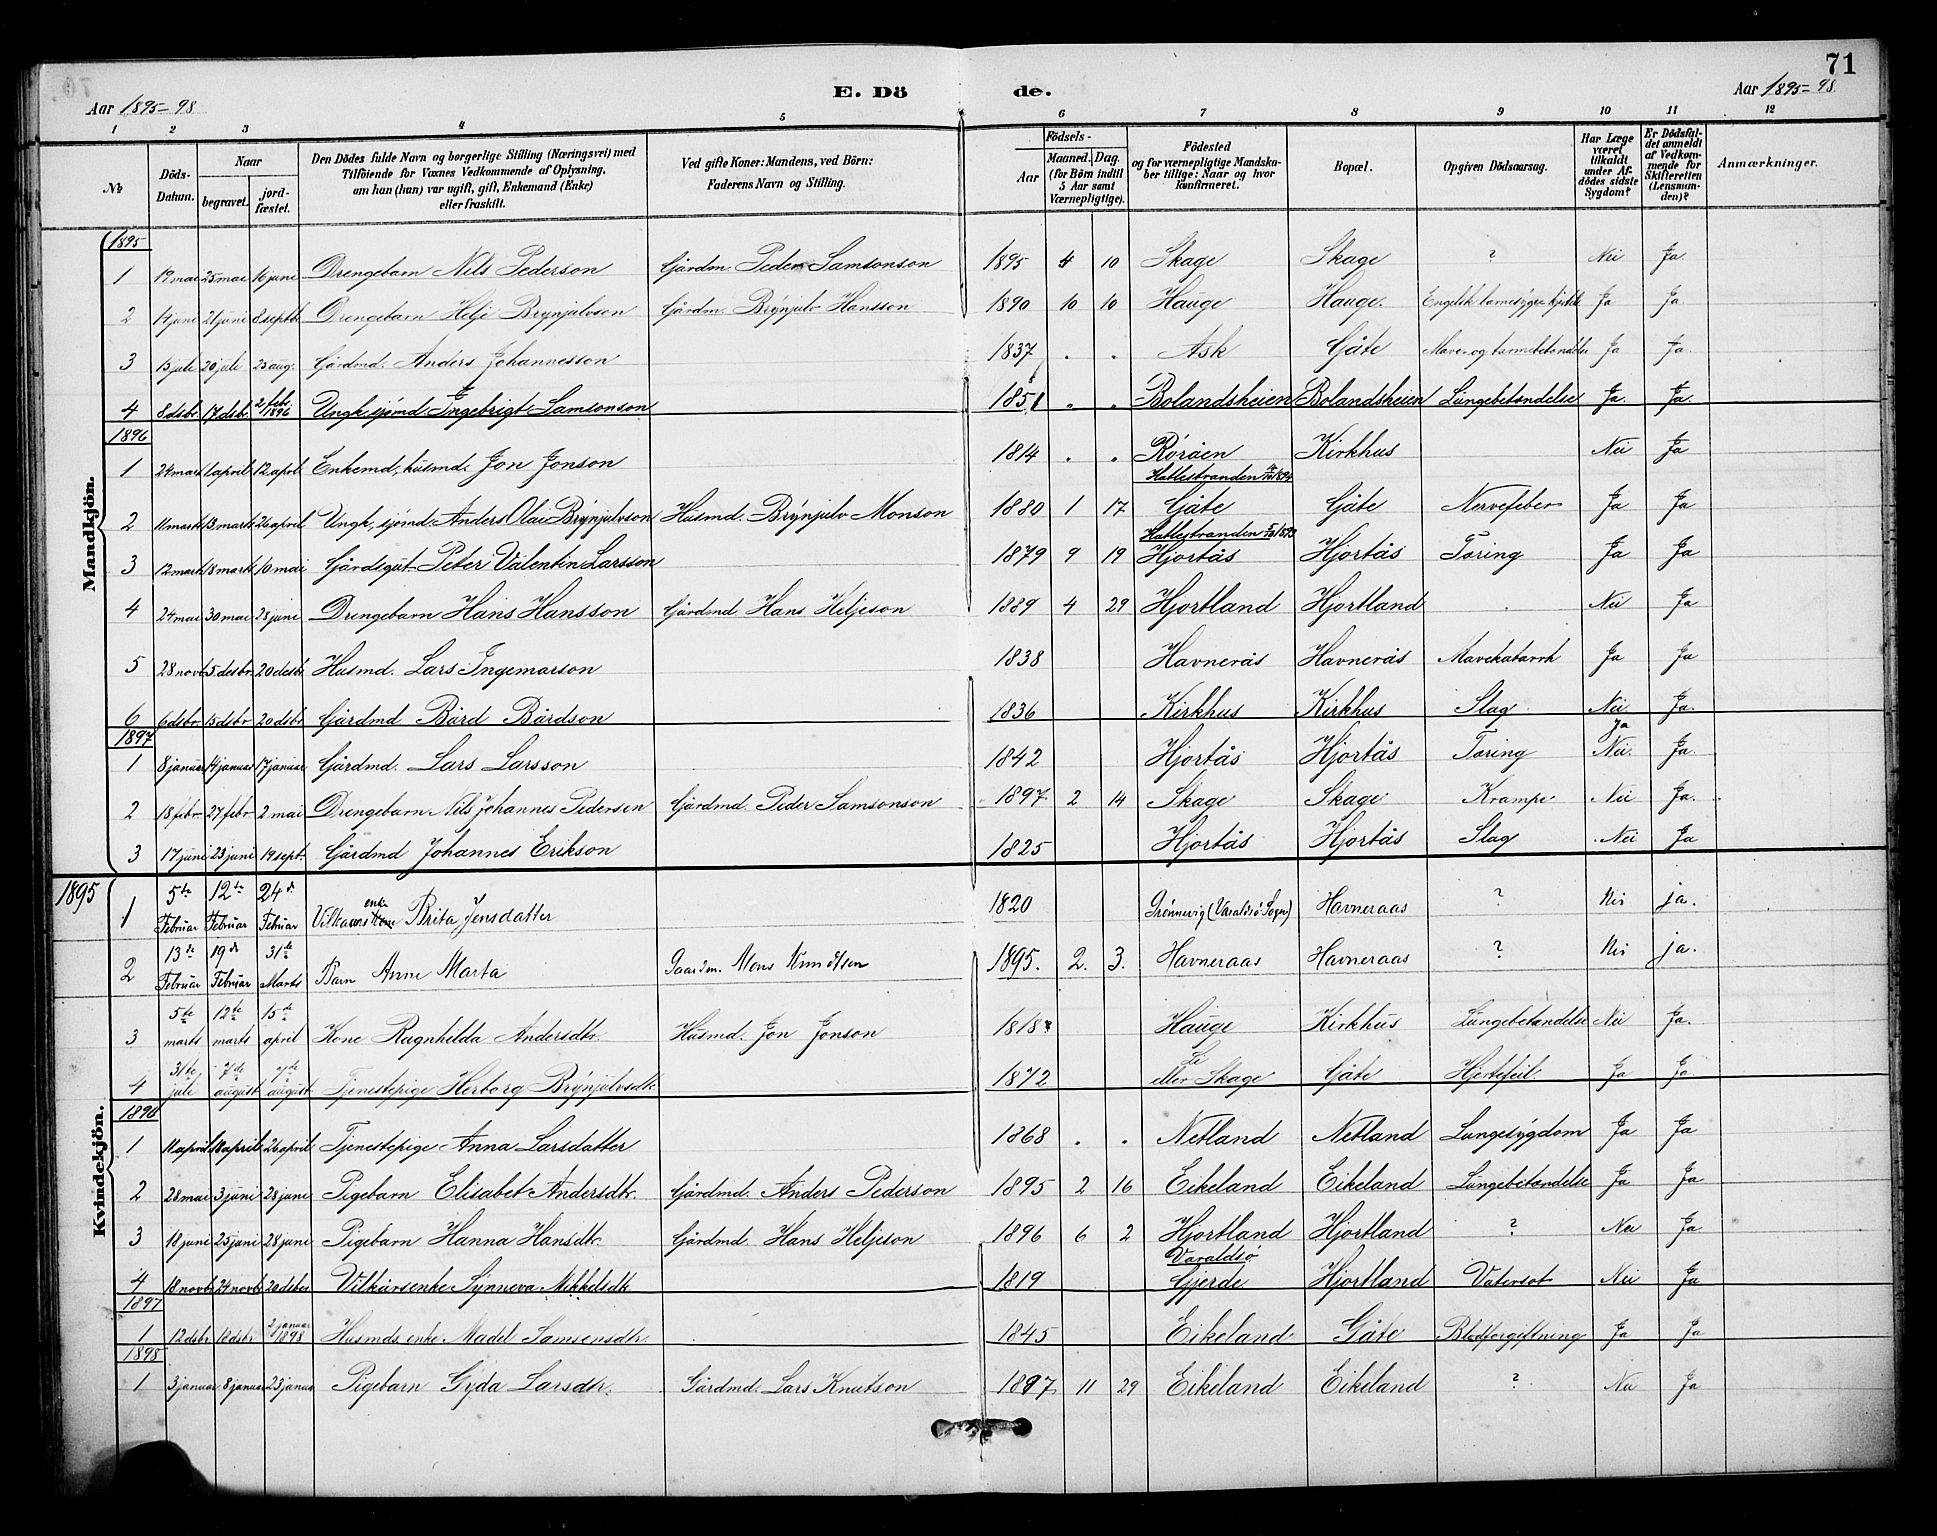 71
Aar 1895-98
E. Dö de.
Aar 1895-98
1 2 3 4 5 6 7 8 9 10 11 12
No
Döds-Datum.
Naar
begravet.
jord-fæstet.
Den Dödes fulde Navn og borgerlige Stilling (Næringsvei) med
Tilföiende for Voxnes Vedkommende af Oplysning,
om han (hun) var ugift, gift, Enkemand (Enke)
eller fraskilt.
Ved gifte Koner: Mandens, ved Börn:
Faderens Navn og Stilling.
Födsels-
Aar
Maaned. Dag.
(for Börn indtil
5 Aar samt
Værnepligtige).
Födested
og for værnepligtige Mandska-
ber tillige: Naar og hvor
konfirmeret.
Bopæl.
Opgiven Dödsaarsag.
Har Læge
været
tilkaldt
under Af-
dödes sidste
Sygdom?
Er Dödsfal-
det anmeldt
af Vedkom-
mende for
Skifteretten
(Lensman-
den)?
Anmærkninger.
Mandkjön.
1895
1 19 mai 25 mai 16 juni Drengebarn Nils Pederson Gårdm. Peder Samsonson 1895 4 10 Skage Skage ? Nei Ja
2 14 juni 21 juni 8 septbr Drengebarn Helje Brynjulvson Gårdm. Brynjulv Hansson 1890 10 10 Hauge Hauge. Engelsk Ja Ja
3 13 juli 20 juli 25 aug. Gårdmd. Anders Johannesson 1837 . . Ask Gåte Mave- og tarmbetændelse Ja Ja.
4 8 dsbr 17 dsbr. 2 feb. 1896 Ungk. sjömd. Ingebrigt Samsonson 1851 . . Bolandsheien Bolandsheien Lungebetændelse Ja. Ja.
1896
1 24 mars 1 april 12 april Enkemd, husmd. Jon Jonson 1814 . . Röröen Kirkhus Nei Ja
2 11 marts 13 marts 26 april Ungk, sjömd. Anders Olai Brynjulvson Husmd. Brynjulv Monson 1880 1 17 Hatlestranden 1894 Gåte Gåte Nervefeber Ja Ja
3 12 marts 18 marts 10 mai Gårdsgut Peter Valentin Larsson 1879 9 19 Hatlestranden Hjortås Hjortås Tæring Ja Ja
4 24 mai 30 mai 28 juni Drengebarn Hans Hansson Gårdmd. Hans Heljeson 1889 4 29 Hjortland Hjortland . Nei Ja
5 28 novb. 5 desbr. 20 desbr. Husmd. Lars Ingemarson 1838 Havnerås Havnerås Mavekatarrh Ja Ja
6 6 dsbr. 15 dsbr. 20 dsbr. Gårdmd Bård Bårdson 1836 Kirkhus Kirkhus Slag Nei Ja.
1897
1 8 januar 14 januar 17 januar Gårdmd. Lars Larsson 1842 Hjortås Hjortås Tæring Ja Nei. Ja.
2 18 febr. 27 febr. 2 mai Drengebarn Nils Johannes Pedersen Gårdmd. Peder Samsonson 1897 2 14 Skage Skage Krampe Nei Ja.
3 17 juni 23 juni 19 sept. Gårdmd Johannes Erikson 1825 Hjortås Hjortås Slag Nei Ja
Kvindekjön.
1895
1 5te Februar 12te Februar 24de Februar Vilkaars enke Brita Jensdatter 1820 Grönnevig (Varaldsö Sogn) Havneraas ? Nei ja.
2 13de Februar 19de Februar 31te Marts Barn Anne Marta Gaardm. Mons Knudtsen 1895. 2. 3. Havneraas Havneraas ? Nei ja.
3 5te marts 12te marts 15de april Kone Ragnhilda Andersdtr. Husmd. Jon Jonson 1818 Hauge Kirkhus Lungebetændelse Nei Ja.
4 31te juli 7de august 7de august Tjenestepige Herborg Brynjulvsdtr. 1872 Li eller Skage Gåte Hjertefeil. Ja Ja
1896
1 11 april 18 april 26 april Tjenestepige Anna Larsdatter 1868 . . Netland Netland Lungesygdom Ja Ja
2 28 mai 3 juni 28 juni Pigebarn Elisabet Andersdtr. Gårdmd. Anders Pederson 1895 2 16 Eikeland Eikeland Lungebetændelse Ja Ja
3 18 juni 25 juni 28 juni Pigebarn Hanna Hansdtr. Gårdmd. Hans Heljeson 1896 6 2 Hjortland Hjortland ? Nei Ja
4 18 novbr 24 novbr 20 desber Vilkårsenke Synneva Mikkelsdtr. 1819 Varaldsö Gjerde Hjortland Vatersot Nei Ja
1897
1 12 dsbr 18 dsbr 2 januar 1898 Husmds. enke Madel Samsensdtr. 1845 Eikeland Gåte Blodforgiftning Ja Ja
1898
1 3 januar 8 januar 23 januar Pigebarn Gyda Larsdtr. Gårdmd. Lars Knutson 1897 11 29 Eikeland Eikeland ? Nei Ja